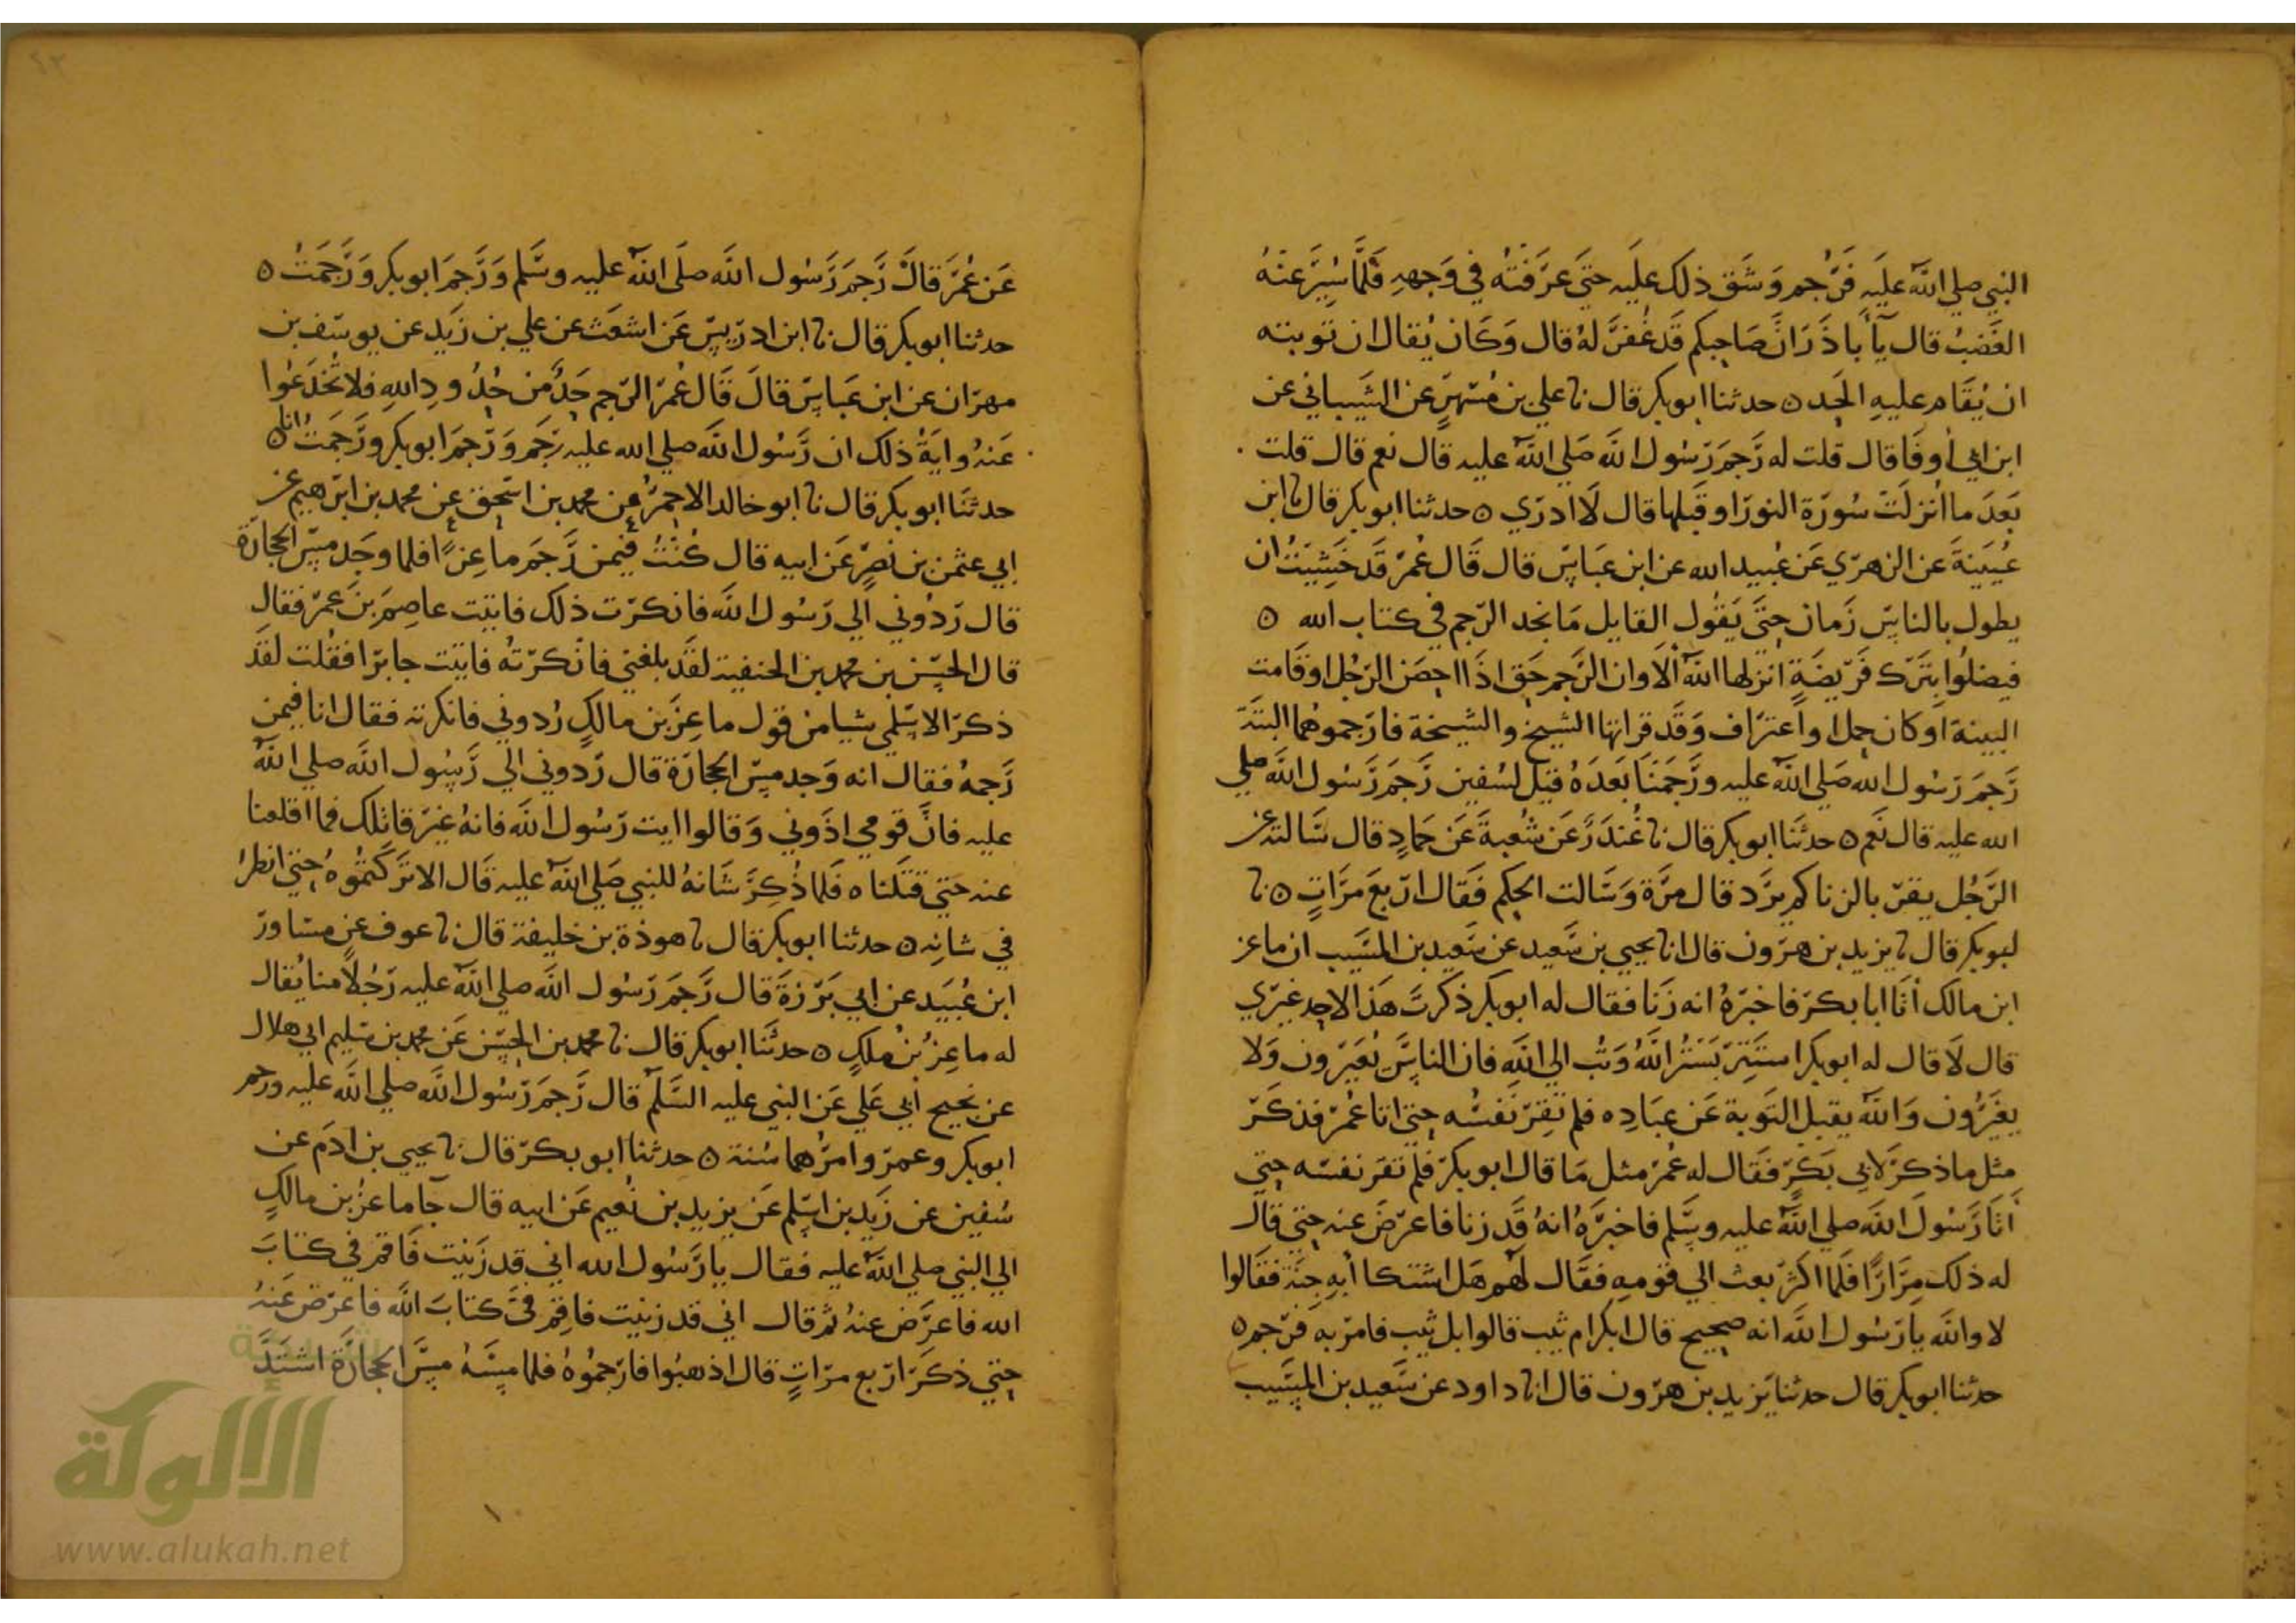 النبي صلي الله عليه فرجم وشق ذلك عليه حتى عرفته في وجهه فلما سير عنه
الغضب قال يا با ذر ان صاحبكم قد غفر له قال وكان يقال ان توبته
ان يقام عليه الحد ه حدثنا ابو بكر قال نا علي بن مسهر عن الشيباني عن
ابن ابي اوفا قال قلت له رجم رسول الله صلي الله عليه قال نعم قال قلت
بعد ما انزلت سورة النور او قبلها قال لا ادري ه حدثنا ابو بكر قال نا ابن
عيينة عن الزهري عن عبيد الله عن ابن عباس قال قال عمر قد خشيت ان
يطول بالناس زمان حتى يقول القايل ما نجد الرجم في كتاب الله ه
فيضلوا بترك فريضة انزلها الله ألا وان الرجم حق اذا احصن الرجل او قامت
البينة او كان حمل او اعتراف وقد قراتها الشيخ والشيخة فارجموهما البتة
رجم رسول الله صلي الله عليه ورجمنا بعده قيل لسفين رجم رسول الله صلي
الله عليه قال نعم ه حدثنا ابو بكر قال نا غندر عن شعبة عن حماد قال سالته عن
الرجل يقر بالزنا كم يرد قال مرة وسالت الحكم فقال اربع مرات ه نا
ابو بكر قال نا يزيد بن هرون قال انا يحيي بن سعيد عن سعيد بن المسيب ان ماعز
ابن مالك أتا ابا بكر فاخبره انه زنا فقال له ابو بكر ذكرت هذا لاحد غيري
قال لا قال له ابو بكر استتر بستر الله وتب الي الله فان الناس يعيرون ولا
يغيرون والله يقبل التوبة عن عباده فلم تقر نفسه حتي اتا عمر فذكر
مثل ما ذكر لابي بكر فقال له عمر مثل ما قال ابو بكر فلم تقر نفسه حتي
أتا رسول الله صلي الله عليه وسلم فاخبره انه قد زنا فاعرض عنه حتي قال
له ذلك مرارا فلما اكثر بعث الي قومه فقال لهم هل اشتكا أبه جنة فقالوا
لا والله يا رسول الله انه صحيح قال ابكر ام ثيب قالوا بل ثيب فامر به فرجم ه
حدثنا ابو بكر قال حدثنا يزيد بن هرون قال انا داود عن سعيد بن المسيب
عن عمر قال رجم رسول الله صلى الله عليه وسلم ورجم ابو بكر ورجمت ه
حدثنا ابو بكر قال نا ابن ادريس عن اشعث عن علي بن زيد عن يوسف بن
مهران عن ابن عباس قال قال عمر الرجم حد من حدود الله فلا تخدعوا
عنه واية ذلك ان رسول الله صلي الله عليه رجم ورجم ابو بكر ورجمت انا ه
حدثنا ابو بكر قال نا ابو خالد الاحمر عن محمد بن اسحق عن محمد بن ابرهيم عن
ابي عثمن بن نصر عن ابيه قال كنت فيمن رجم ماعزا فلما وجد مس الحجارة
قال ردوني الي رسول الله فانكرت ذلك فاتيت عاصم بن عمر فقال
قال الحسن بن محمد بن الحنفية لقد بلغني فانكرته فاتيت جابرا فقلت لقد
ذكر الاسلمي شيا من قول ماعز بن مالك ردوني فانكرته فقال انا فيمن
رجمه فقال انه وجد مس الحجارة قال ردوني الي رسول الله صلي الله
عليه فان قومي اذوني وقالوا ايت رسول الله فانه غير قاتلك فما اقلعنا
عنه حتي قتلناه فلما ذكر شانه للنبي صلي الله عليه قال الا تركتموه حتي انظر
في شانه ه حدثنا ابو بكر قال نا هوذة بن خليفة قال نا عوف عن مساور
ابن عبيد عن ابي برزة قال رجم رسول الله صلي الله عليه رجلا منا يقال
له ماعز بن ملك ه حدثنا ابو بكر قال نا محمد بن الحسن عن محمد بن سليم ابي هلال
عن نجيح أبي علي عن النبي عليه السلم قال رجم رسول الله صلي الله عليه ورجم
ابو بكر وعمر وامرهما سنة ه حدثنا ابو بكر قال نا يحيي بن ادم عن
سفين عن زيد بن اسلم عن يزيد بن نعيم عن ابيه قال جآ ماعز بن مالك
الي النبي صلي الله عليه فقال يا رسول الله اني قد زنيت فاقم في كتاب
الله فاعرض عنه ثم قال اني قد زنيت فاقم في كتاب الله فاعرض عنه
حتي ذكر اربع مرات قال اذهبوا فارجموه فلما مسه مس الحجارة اشتد
الألوكة
www.alukah.net